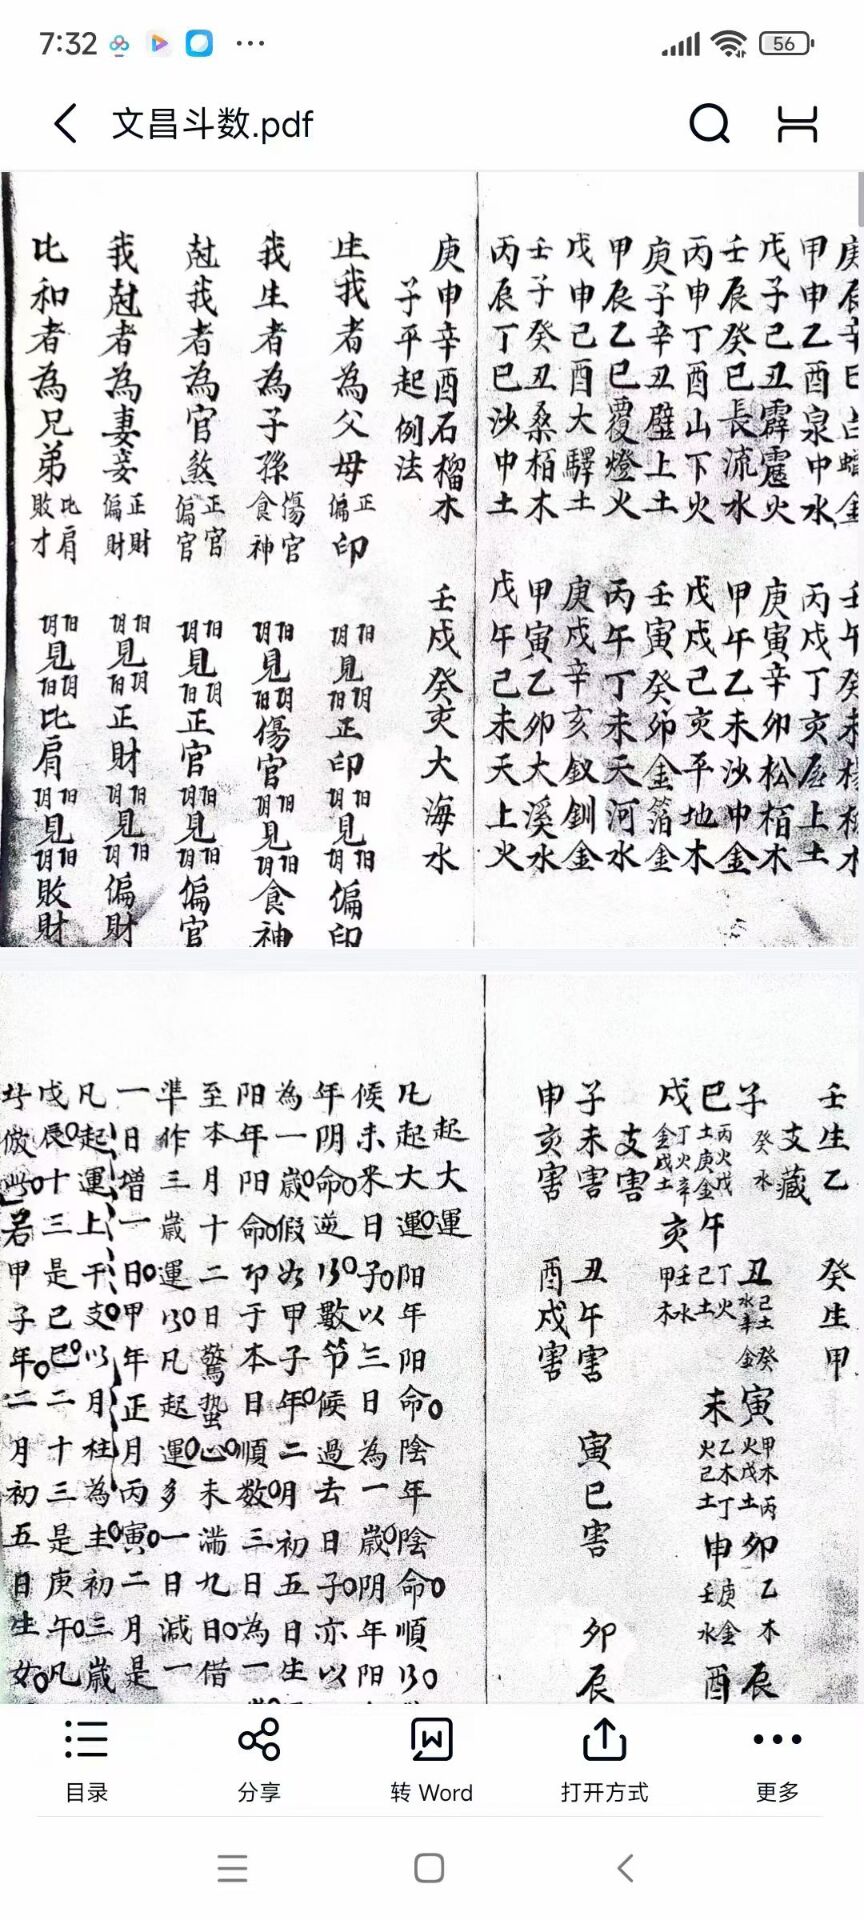 7:32
56
文昌斗数.pdf
庚辰辛巳白蠟金 壬午癸未楊柳木
甲申乙酉泉中水 丙戌丁亥屋上土
戊子己丑霹靂火 庚寅辛卯松栢木
壬辰癸巳長流水 甲午乙未沙中金
丙申丁酉山下火 戊戌己亥平地木
庚子辛丑壁上土 壬寅癸卯金箔金
甲辰乙巳覆燈火 丙午丁未天河水
戊申己酉大驛土 庚戌辛亥釵釧金
壬子癸丑桑栢木 甲寅乙卯大溪水
丙辰丁巳沙中土 戊午己未天上火
庚申辛酉石榴木 壬戌癸亥大海水
子平起例法
生我者為父母 正偏印 阳阴見阴阳正印 阳阴見阳阴偏印
我生者為子孫 傷官食神 阳阴見阴阳傷官 阳阴見阳阴食神
尅我者為官煞 正官偏官 阳阴見阴阳正官 阳阴見阳阴偏官
我尅者為妻妾 正財偏財 阳阴見阴阳正財 阳阴見阳阴偏財
比和者為兄弟 比肩敗才 阳阴見阴阳比肩 阳阴見阳阴敗財
壬生乙 癸生甲
支藏
子 癸水 丑 己土癸水辛金 寅 甲木丙火戊土 卯 乙木 辰
巳 丙火戊土庚金 午 丁火己土 未 乙木丁火己土 申 庚金壬水 酉
戌 丁火辛金戊土 亥 壬水甲木
支害
子未害 丑午害 寅巳害 卯辰
申亥害 酉戌害
起大運
凡起大運阳年阳命陰年陰命順行
候未来日子以三日為一歲阴年阳
年阴命逆行數节候過去日子亦以
為一歲假如甲子年二月初五日生
阳年阳命卽于本日順数三日為一
至本月十二日驚蛰止未满九日借
準作三歲運行凡起運多一日減一
一日增一日甲年正月丙寅二月是
凡起運上干支以月柱為主初三歲
戊辰十三是己巳二十三是庚午凡
此倣此若甲子年二月初五日生女
目录
分享
转 Word
打开方式
更多